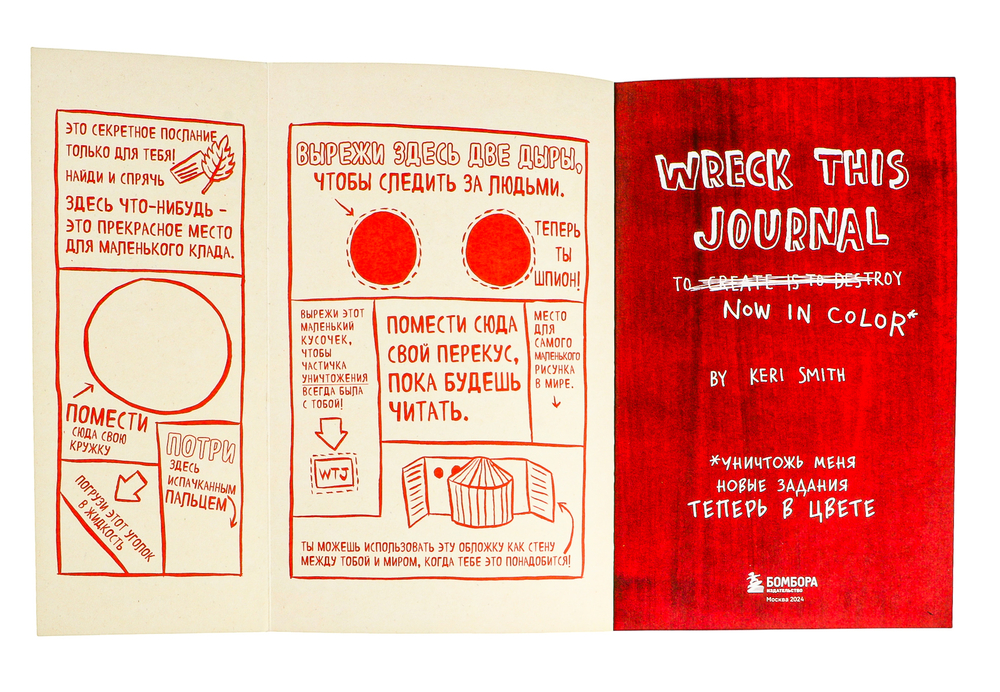 ЭТО СЕКРЕТНОЕ ПОСЛАНИЕ
ТОЛЬКО ДЛЯ ТЕБЯ!
НАЙДИ И СПРЯЧЬ
ЗДЕСЬ ЧТО-НИБУДЬ –
ЭТО ПРЕКРАСНОЕ МЕСТО
ДЛЯ МАЛЕНЬКОГО КЛАДА.
ПОМЕСТИ
СЮДА СВОЮ
КРУЖКУ
ПОТРИ
ЗДЕСЬ
ИСПАЧКАННЫМ
ПАЛЬЦЕМ
ПОГРУЗИ ЭТОТ УГОЛОК
В ЖИДКОСТЬ
ВЫРЕЖИ ЗДЕСЬ ДВЕ ДЫРЫ,
ЧТОБЫ СЛЕДИТЬ ЗА ЛЮДЬМИ.
ТЕПЕРЬ
ТЫ
ШПИОН!
ВЫРЕЖИ ЭТОТ
МАЛЕНЬКИЙ
КУСОЧЕК,
ЧТОБЫ
ЧАСТИЧКА
УНИЧТОЖЕНИЯ
ВСЕГДА БЫЛА
С ТОБОЙ!
WTJ
ПОМЕСТИ СЮДА
СВОЙ ПЕРЕКУС,
ПОКА БУДЕШЬ
ЧИТАТЬ.
МЕСТО
ДЛЯ
САМОГО
МАЛЕНЬКОГО
РИСУНКА
В МИРЕ.
ТЫ МОЖЕШЬ ИСПОЛЬЗОВАТЬ ЭТУ ОБЛОЖКУ КАК СТЕНУ
МЕЖДУ ТОБОЙ И МИРОМ, КОГДА ТЕБЕ ЭТО ПОНАДОБИТСЯ!
WRECK THIS
JOURNAL
TO CREATE IS TO DESTROY
NOW IN COLOR*
BY KERI SMITH
*УНИЧТОЖЬ МЕНЯ
НОВЫЕ ЗАДАНИЯ
ТЕПЕРЬ В ЦВЕТЕ
БОМБОРА
ИЗДАТЕЛЬСТВО
Москва 2024